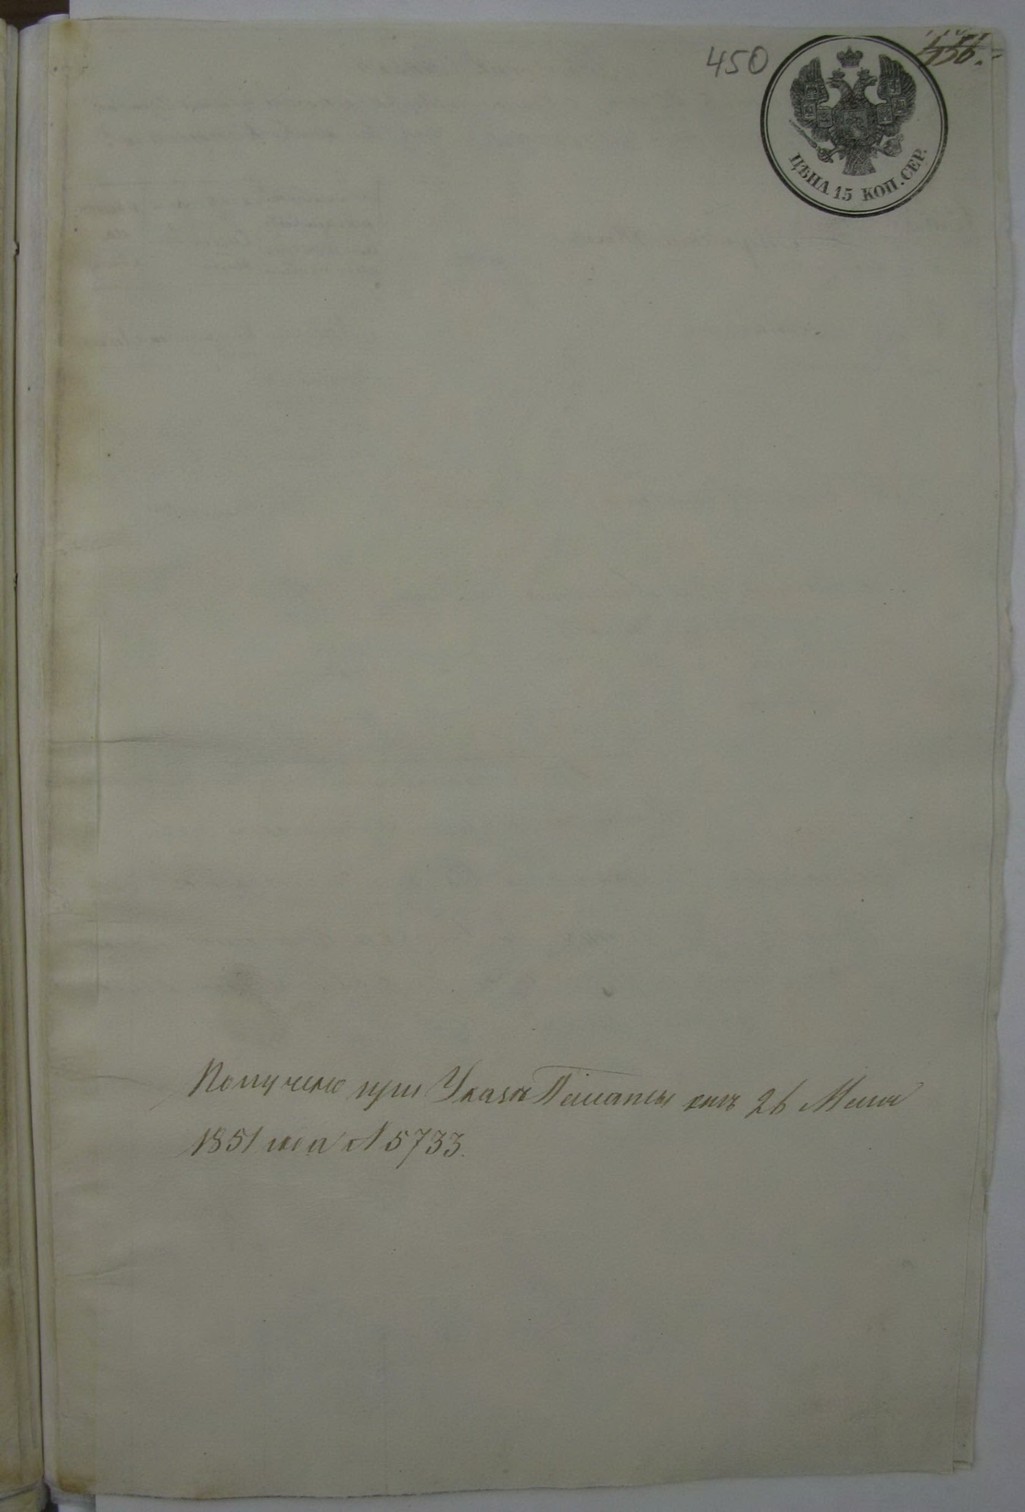 450
456.
ЦѢНА 15 КОП. СЕР.
Получено при Указѣ Палаты отъ 26 Мая
1851 года № 5733.